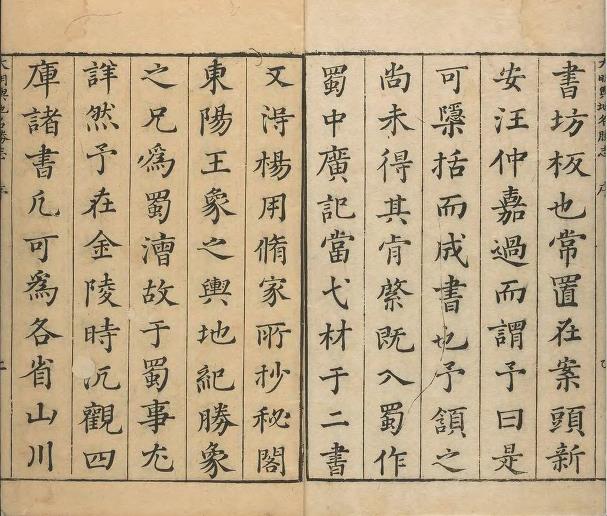 書坊板也常置在案頭新
安汪仲嘉過而謂予曰是
可檃括而成書也予頷之
尚未得其肯綮既入蜀作
蜀中廣記當弋材于二書
又淂楊用脩家所抄秘閣
東陽王象之輿地紀勝象
之兄爲蜀漕故于蜀事尤
詳然予在金陵時汎觀四
庫諸書凡可爲各省山川